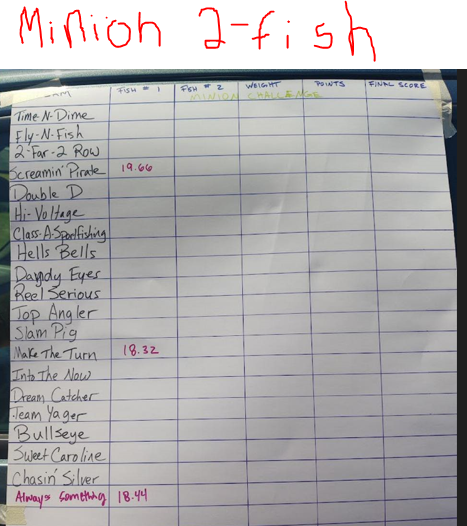 Minion 2-fish
FISH # 1 FISH # 2 WEIGHT POINTS FINAL SCORE
MINION CHALLENGE
Time-N-Dime
Fly-N-Fish
2-Far-2 Row
Screamin' Pirate 19.66
Double D
Hi-Voltage
Class-A-Sportfishing
Hells Bells
Dandy Eyes
Reel Serious
Top Angler
Slam Pig
Make The Turn 18.32
Into The Now
Dream Catcher
Team Yager
Bullseye
Sweet Caroline
Chasin' Silver
Always Something 18.44